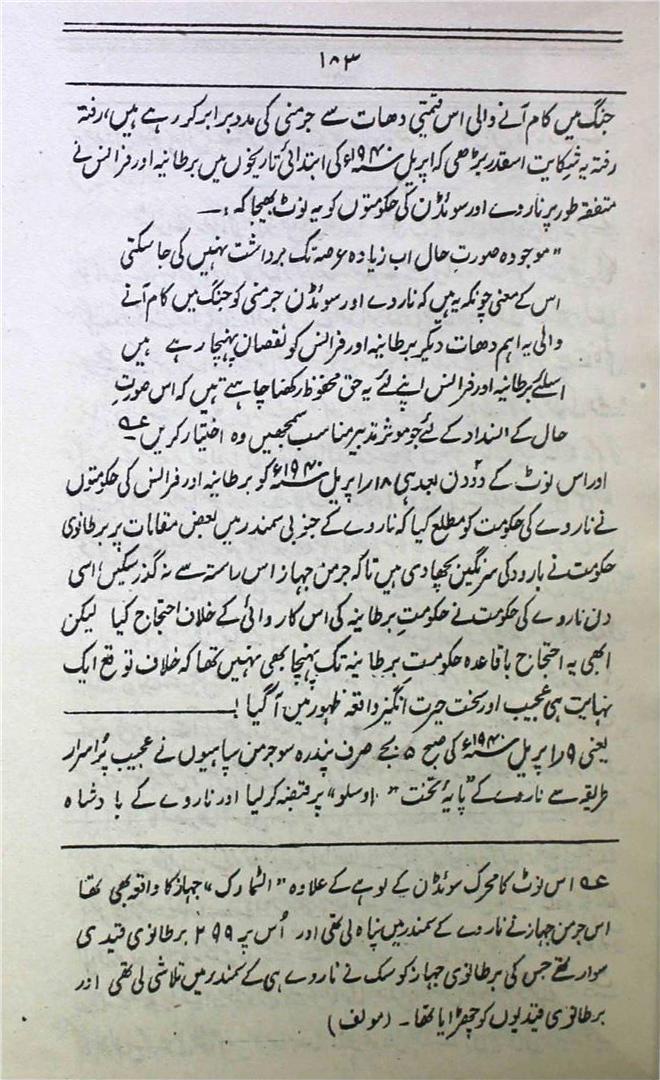 ۱۸۳
جنگ میں کام آنے والی اس قیمتی دھات سے جرمنی کی مدد برابر کر رہے ہیں، رفتہ
رفتہ یہ شکایت اسقدر بڑھی کہ اپریل ۱۹۴۰ء کی ابتدائی تاریخوں میں برطانیہ اور فرانس نے
متفقہ طور پر ناروے اور سوئڈن کی حکومتوں کو یہ نوٹ بھیجا کہ :۔
"موجودہ صورتِ حال اب زیادہ عرصہ تک برداشت نہیں کی جا سکتی
اس کے معنی چونکہ یہ ہیں کہ ناروے اور سوئڈن جرمنی کو جنگ میں کام آنے
والی یہ اہم دھات دیکر برطانیہ اور فرانس کو نقصان پہنچا رہے ہیں
اسلئے برطانیہ اور فرانس اپنے لئے یہ حق محفوظ رکھنا چاہتے ہیں کہ اس صورتِ
حال کے انسداد کے لئے جو موثر تدبیر مناسب سمجھیں وہ اختیار کریں" عہ
اور اس نوٹ کے دو دن بعد ہی ۸ار اپریل ۱۹۴۰ء کو برطانیہ اور فرانس کی حکومتوں
نے ناروے کی حکومت کو مطلع کیا کہ ناروے کے جنوبی سمندر میں بعض مقامات پر برطانوی
حکومت نے بارود کی سرنگین بچھا دی ہیں تاکہ جرمن جہاز اس راستہ سے نہ گذر سکیں، اسی
دن ناروے کی حکومت نے حکومتِ برطانیہ کی اس کاروائی کے خلاف احتجاج کیا لیکن
ابھی یہ احتجاج باقاعدہ حکومتِ برطانیہ تک پہنچا بھی نہیں تھا کہ خلاف توقع ایک
نہایت ہی عجیب اور سخت حیرت انگیز واقعہ ظہور میں آگیا !
یعنی ۹ر اپریل ۱۹۴۰ء کی صبح ۵ بجے صرف پندرہ سو جرمن سپاہیوں نے عجیب پُراسرار
طریقہ سے ناروے کے پایۂ تخت "اوسلو" پر قبضہ کر لیا اور ناروے کے بادشاہ
عہ اس نوٹ کا محرک سوئڈن کے لوہے کے علاوہ "التمارک" جہاز کا واقعہ بھی تھا
اس جرمن جہاز نے ناروے کے سمندر میں پناہ لی تھی اور اُس پر ۲۹۹ برطانوی قیدی
سوار تھے جس کی برطانوی جہاز کوسک نے ناروے ہی کے سمندر میں تلاشی لی تھی اور
برطانوی قیدیوں کو چھڑایا تھا۔ (مولف)